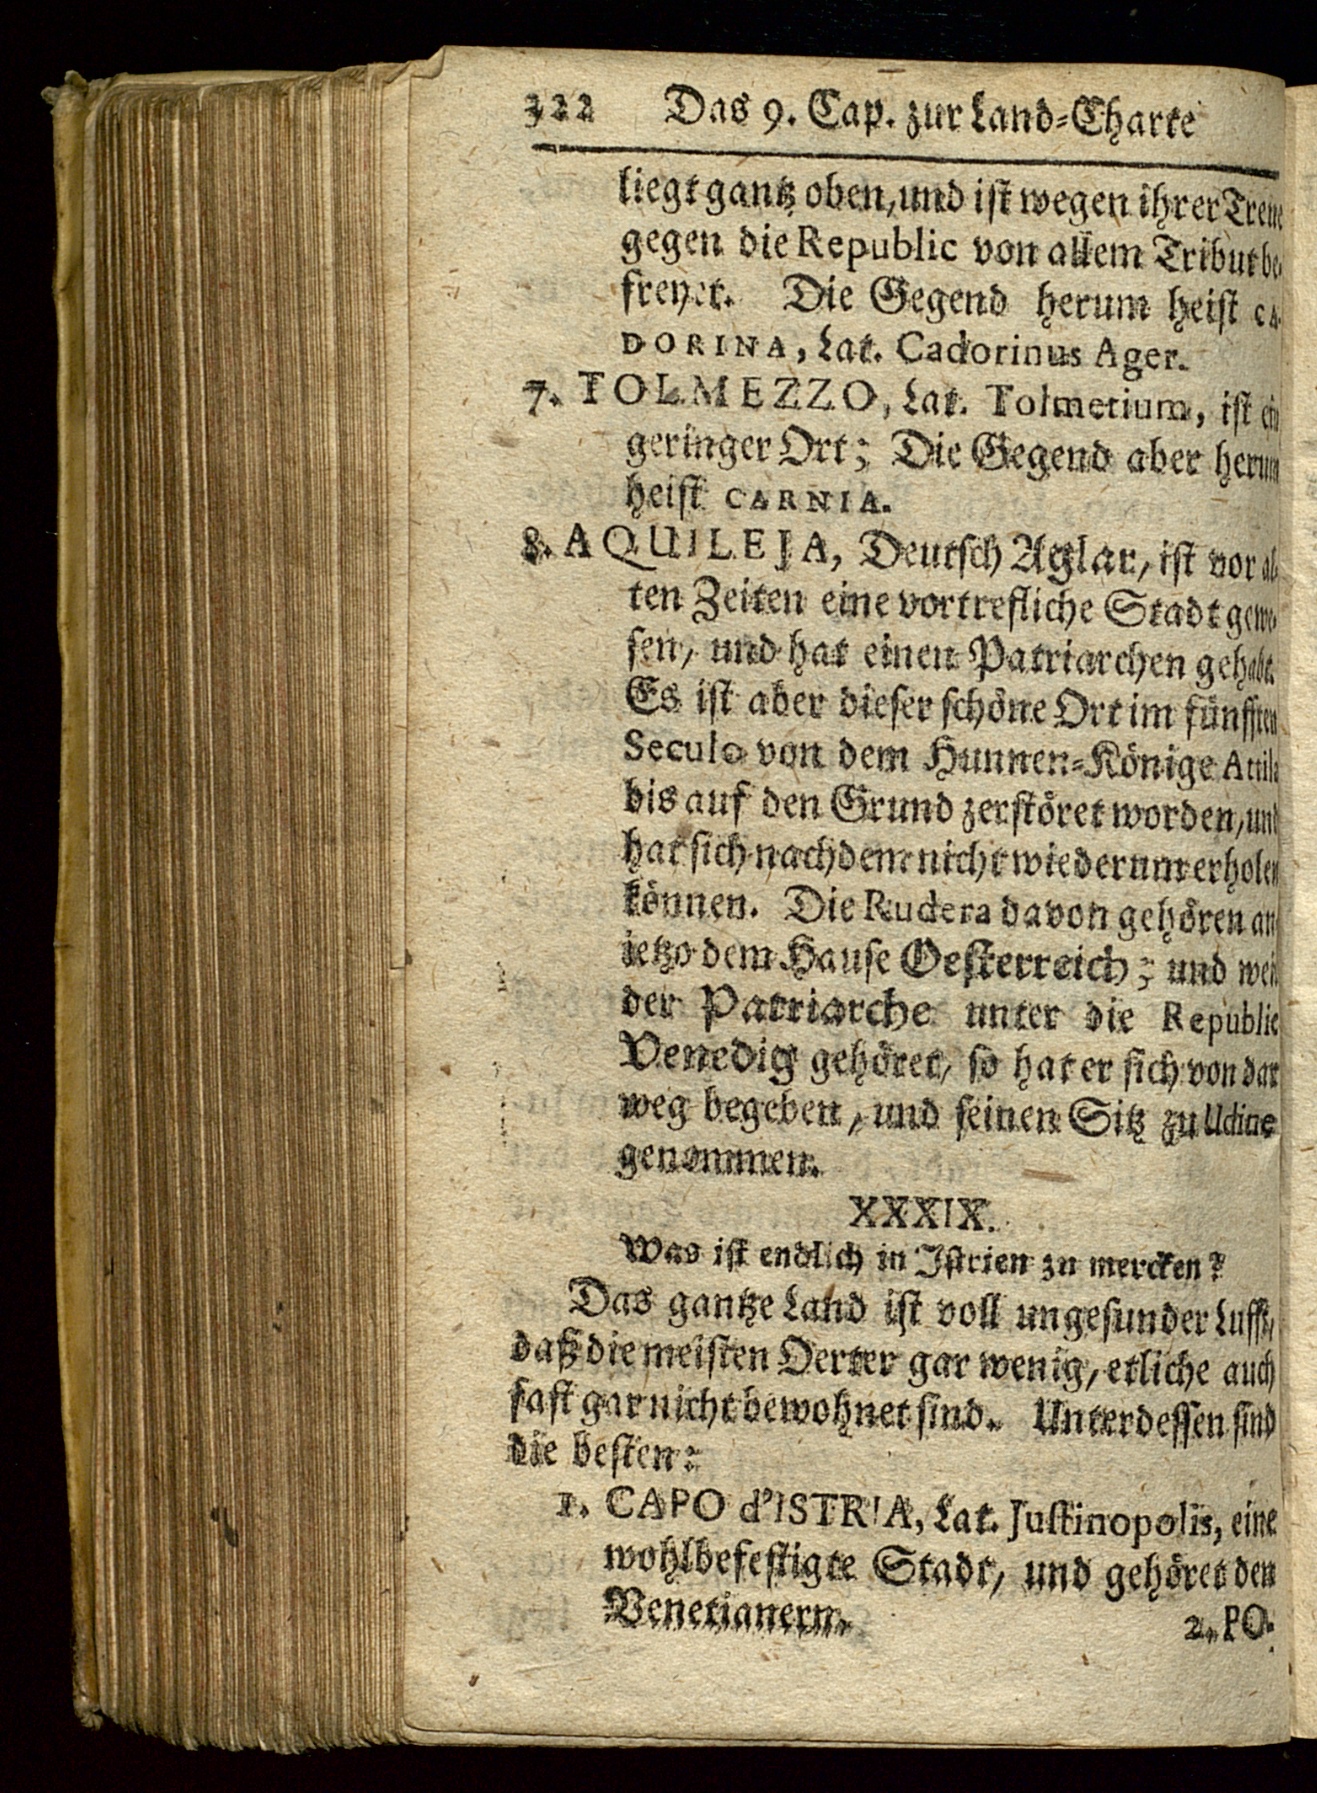 322 Das 9. Cap. zur Land-Charte
liegt gantz oben, und ist wegen ihrer Treue
gegen die Republic von allem Tribut be-
freyet. Die Gegend herum heist CA-
DORINA, Lat. Cadorinus Ager.
7. TOLMEZZO, Lat. Tolmetium, ist ein
geringer Ort; Die Gegend aber herum
heist CARNIA.
8. AQUILEJA, Deutsch Aglar, ist vor al-
ten Zeiten eine vortrefliche Stadt gewe-
sen, und hat einen Patriarchen gehabt.
Es ist aber dieser schöne Ort im fünfften
Seculo von dem Hunnen-Könige Attila
bis auf den Grund zerstöret worden, und
hat sich nachdem nicht wiederum erholen
können. Die Rudera davon gehören an
ietzo dem Hause Oesterreich; und weil
der Patriarche unter die Republic
Venedig gehöret, so hat er sich von dar
weg begeben, und seinen Sitz zu Udine
genommen.
XXXIX.
Was ist endlich in Istrien zu mercken?
Das gantze Land ist voll ungesunder Lufft,
daß die meisten Oerter gar wenig, etliche auch
fast gar nicht bewohnet sind. Unterdessen sind
die besten:
1. CAPO d'ISTRIA, Lat. Justinopolis, eine
wohlbefestigte Stadt, und gehöret den
Venetianern.
2. PO-